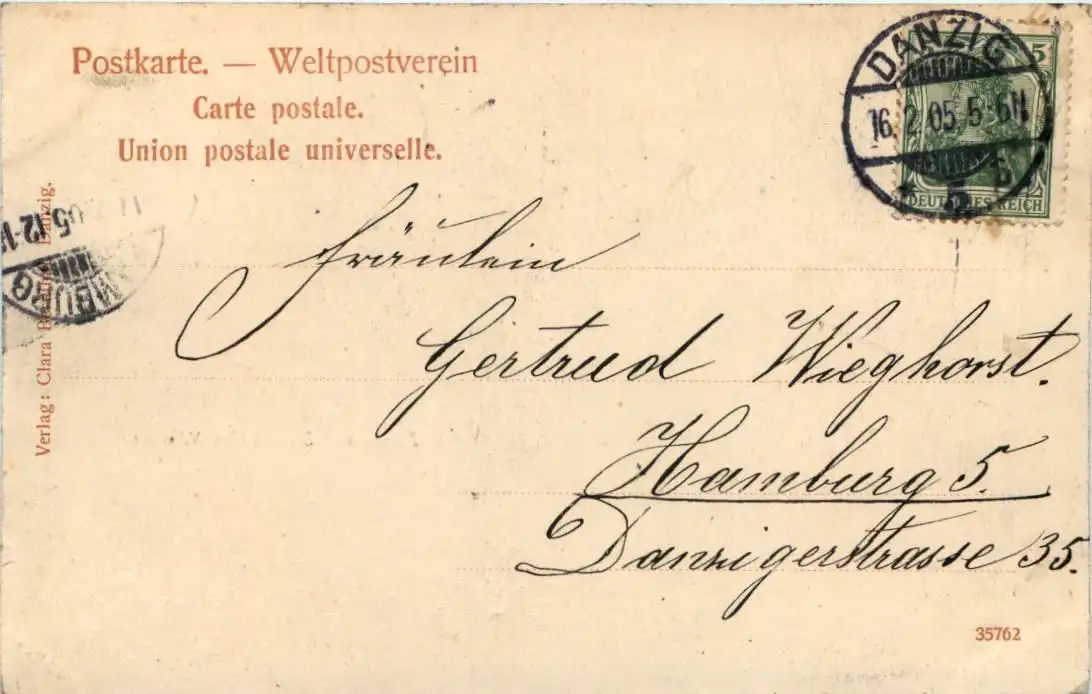 Postkarte. — Weltpostverein
Carte postale.
Union postale universelle.
DANZIG
16.2.05.5-6N
5
DEUTSCHES REICH
Fräulein
Gertrud Wieghorst.
Hamburg 5.
Danzigerstrasse 35.
Verlag: Clara Danzig.
35762